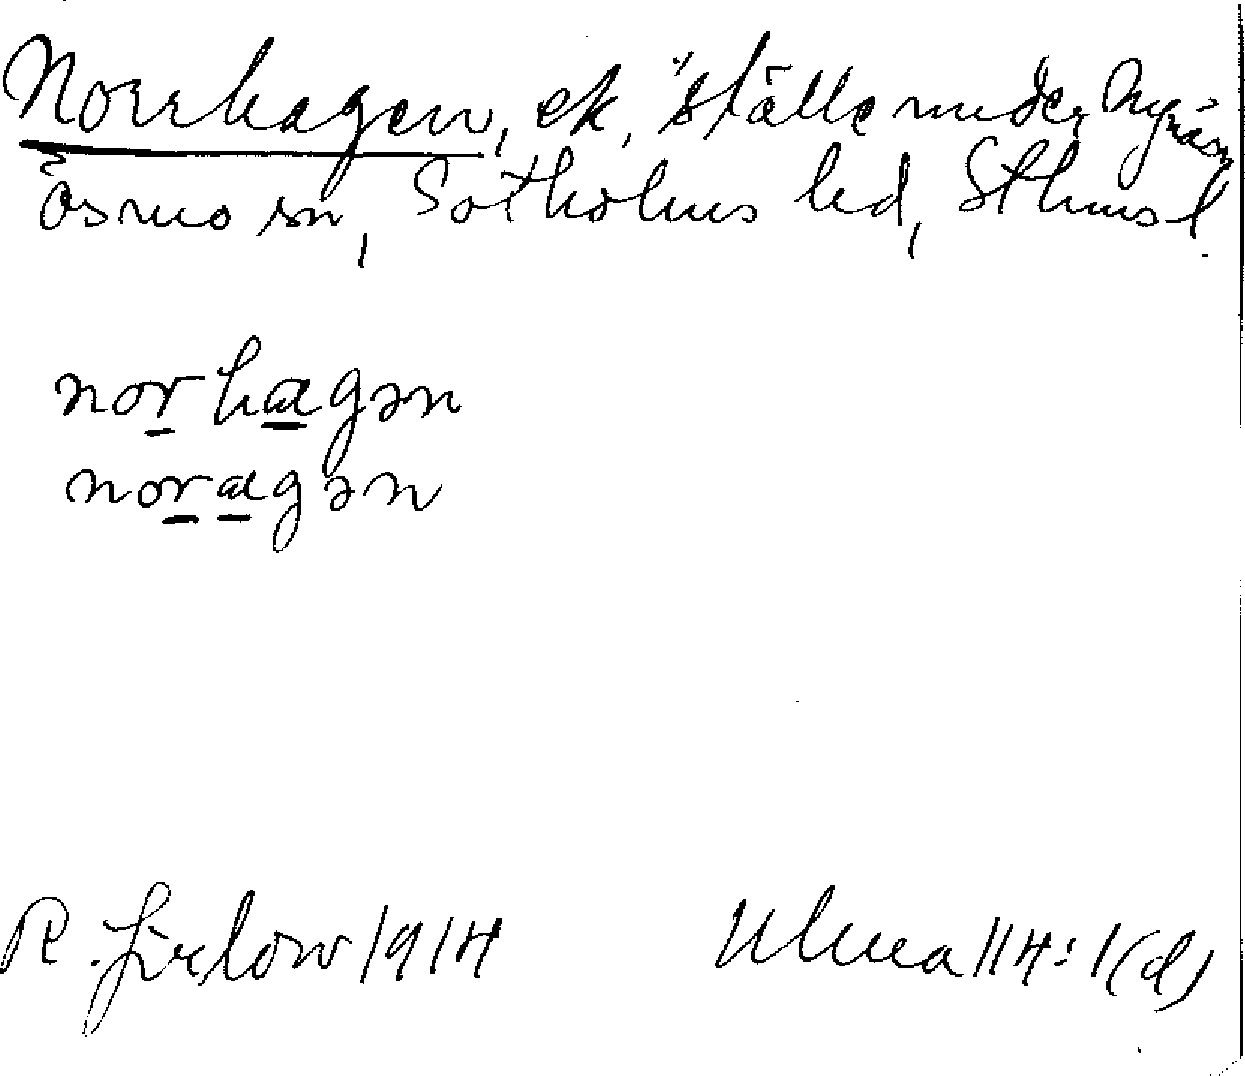 Norrhagen, ek, "ställe under Nynäs,
Ösmo sn, Sotholms hd, Sthms l.
norhagən
noragən
R. Jirlow 1914
Ulma 114:1(d)